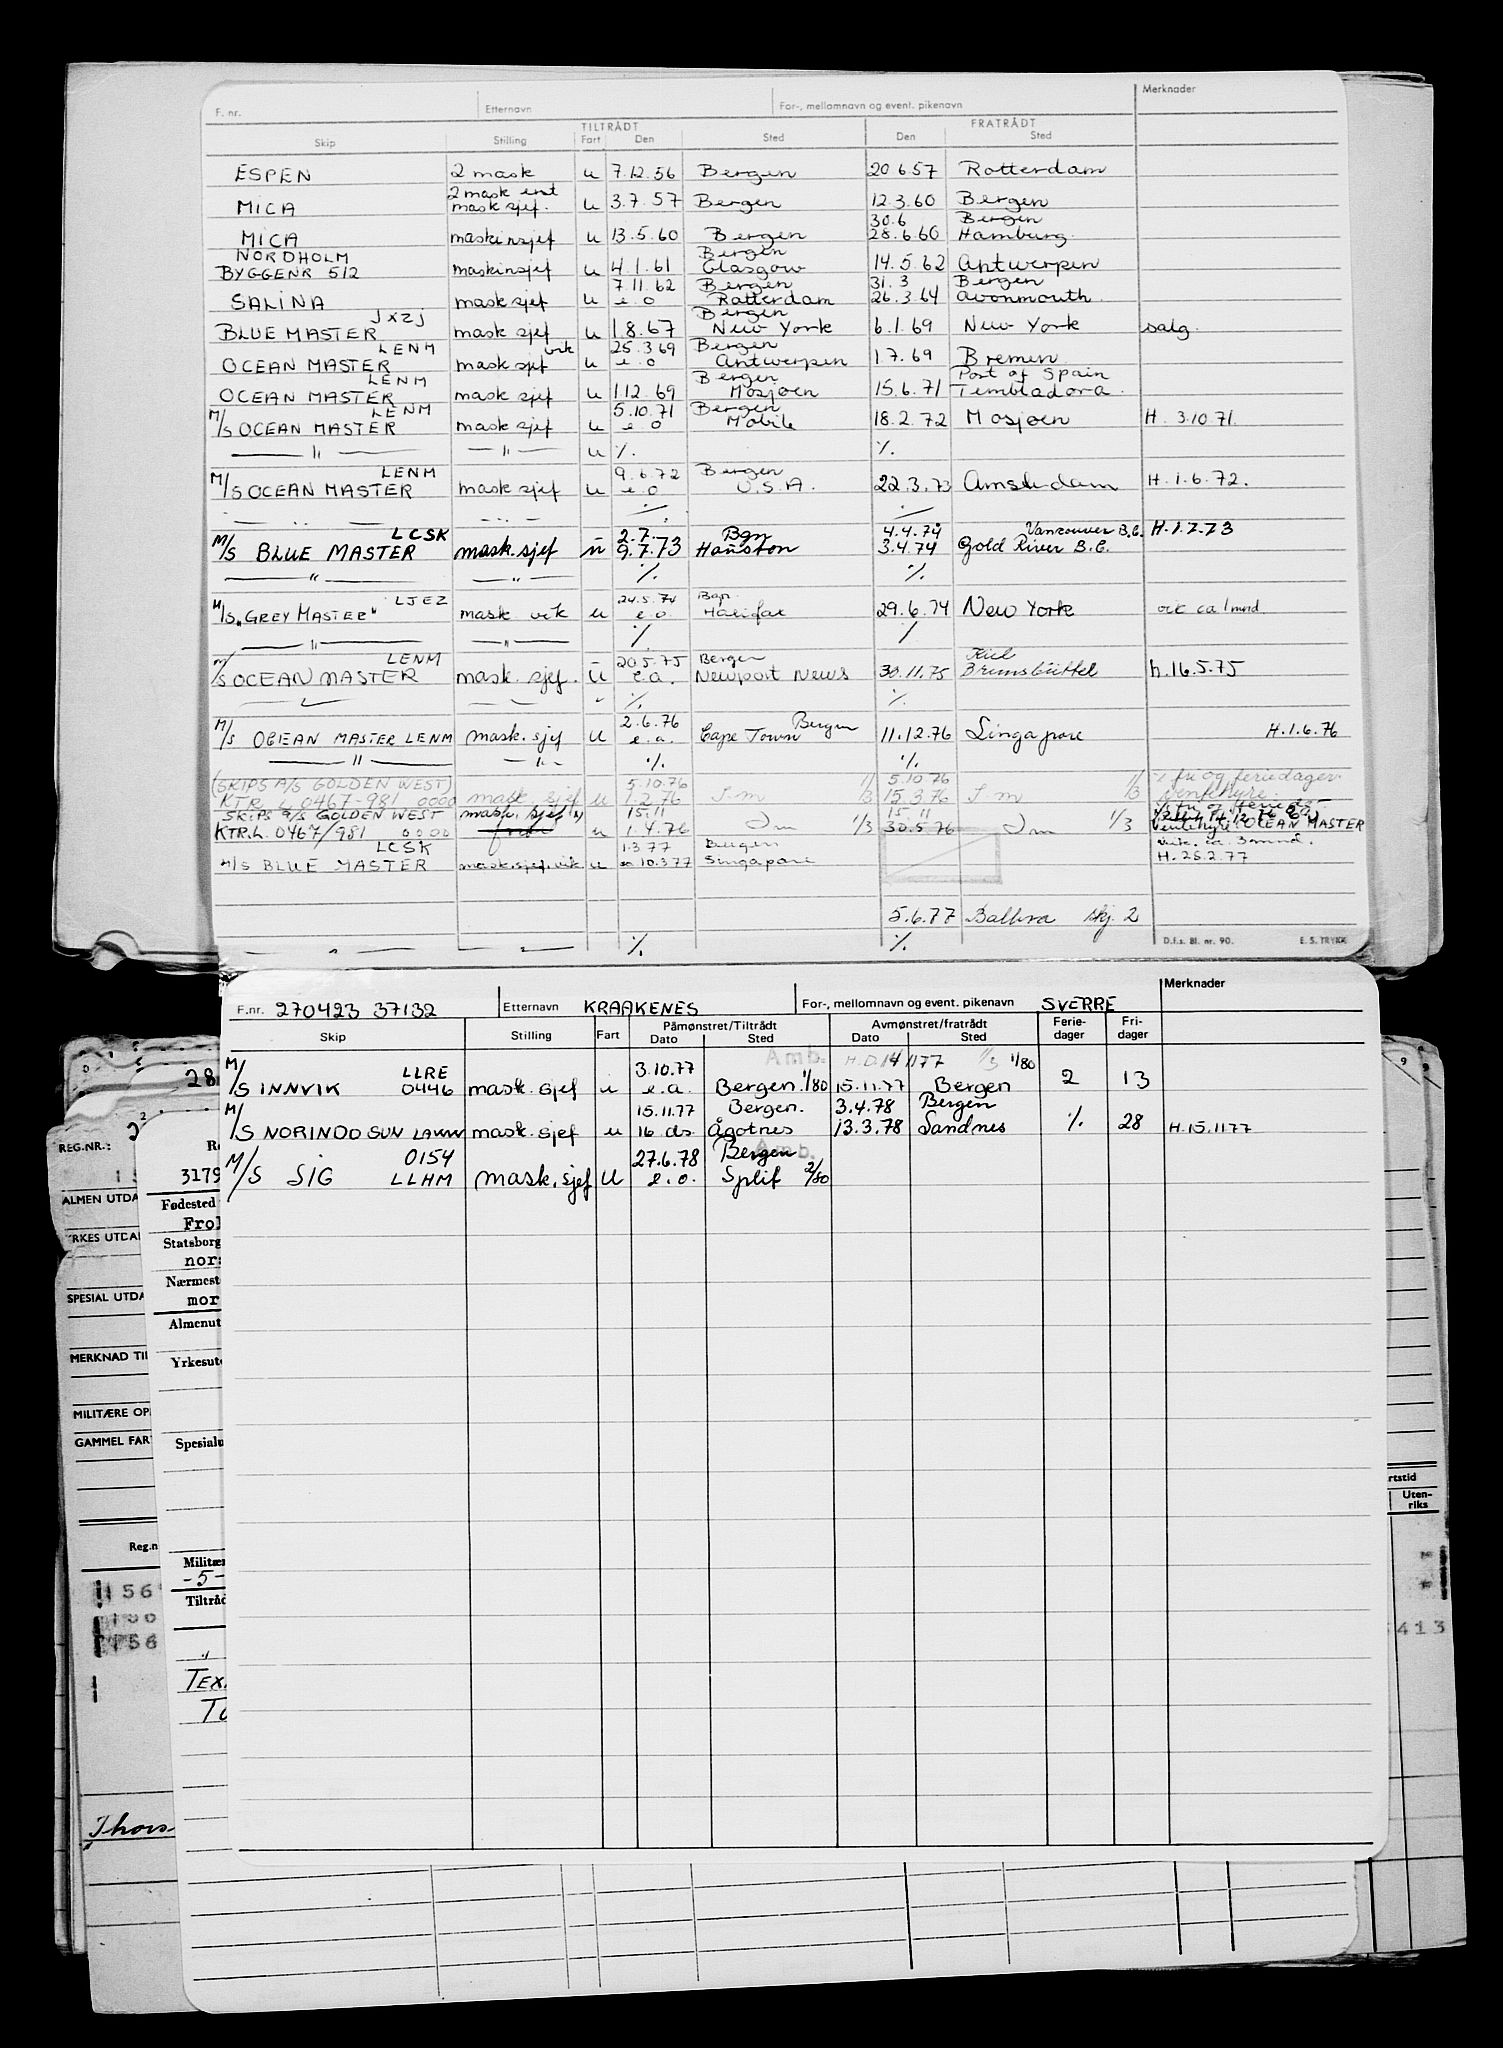 F. nr. Etternavn For-, mellomnavn og event. pikenavn Merknader
TILTRÅDT FRATRÅDT
Skip Stilling Fart Den Sted Den Sted
ESPEN 2 mask u 7.12.56 Bergen 20.6.57 Rotterdam
2 mask
MICA mask sjef. u 3.7.57 Bergen 12.3.60 Bergen
30.6 Bergen
MICA maskinsjef u 13.5.60 Bergen 28.6.60 Hamburg
NORDHOLM Bergen
BYGGENR 512 maskinsjef u 4.1.61 Glasgow 14.5.62 Antwerpen
7.11.62 Bergen 31.3 Bergen
SALINA mask sjef u e.o Rotterdam 26.3.64 Avonmouth
JXZJ Bergen
BLUE MASTER mask sjef u 1.8.67 New York 6.1.69 New York salg.
LENM vik 25.3.69 Bergen
OCEAN MASTER mask sjef u e.o Antwerpen 1.7.69 Bremen
LENM Bergen Port of Spain
OCEAN MASTER mask sjef u 1.12.69 Mosjøen 15.6.71 Tembladora
LENM 5.10.71 Bergen
M/S OCEAN MASTER mask sjef u e.o Mobile 18.2.72 Mosjøen H. 3.10.71.
— " — — " — u %. %.
LENM 9.6.72 Bergen
M/S OCEAN MASTER mask sjef u e.o U.S.A. 22.3.73 Amsterdam H.1.6.72.
LCSK 2.7. Bgn 4.4.74 Vancouver B.C. H.1.7.73
M/S BLUE MASTER mask.sjef u 9.7.73 Houston 3.4.74 Gold River B.C.
— " — — " — %. %.
LJEZ 24.5.74 Bgn
M/S "GREY MASTER" mask vik u e.o. Halifax 29.6.74 New York vik ca 1 mnd.
— " — — " — % %
LENM 20.5.75 Bergen Kiel
M/S OCEAN MASTER mask. sjef. u e.a. Newport News 30.11.75 Brunsbüttel h.16.5.75
%. %.
2.6.76 Bergen
M/S OCEAN MASTER LENM mask. sjef u e.a. Cape Town 11.12.76 Singapore H.1.6.76
— " — — " — %. %.
(SKIPS A/S GOLDEN WEST) 5.10.76 1/ 5.10.76 1/ fri og feriedager
KTR. L 0467-981 0000 mask sjef u 1.2.76 Im /3 15.3.76 Im /3 ventehyre.
SKIPS A/S GOLDEN WEST mask. sjef 15.11 15.11
KTR.L. 0467/981 0000 u 1.4.76 Im 1/3 30.5.76 Im 1/3 ventehyre OCEAN MASTER
LCSK 1.3.77 Bergen vik. ca. 3 mnd.
M/S BLUE MASTER mask.sjef. vik u 10.3.77 Singapore H. 25.2.77
5.6.77 Balboa skj. 2
%. %.
D.f.s. Bl. nr. 90. E. S. TRYKK
Merknader
F.nr. 270423 37132 Etternavn KRAAKENES For-, mellomnavn og event. pikenavn SVERRE
Påmønstret/Tiltrådt Avmønstret/fratrådt Ferie- Fri-
Skip Stilling Fart Dato Sted Dato Sted dager dager
Amb. 1/3 1/80
LLRE 3.10.77
M/S INNVIK 0446 mask.sjef u e.a. Bergen 1/80 15.11.77 Bergen 2 13
15.11.77 Bergen. 3.4.78 Bergen
M/S NORINDO SUN mask.sjef u 16 ds Ågotnes 13.3.78 Sandnes %. 28 H.15.11.77
0154 27.6.78 Bergen Amb.
M/S SIG LLHM mask.sjef u e.o. Split 2/80
REG.NR.:
3179
ALMEN UTDA
Fødested
Frol
YRKES UTDA
Statsborg
nors
Nærmest
SPESIAL UTDA
mor
Almenut
MERKNAD TIL
Yrkesut
MILITÆRE OP
GAMMEL FAR
Spesialu
rtstid
Uten-
riks
Reg.n
Militær
-5-
156
Tiltråd
156
413
TEXA
Thors